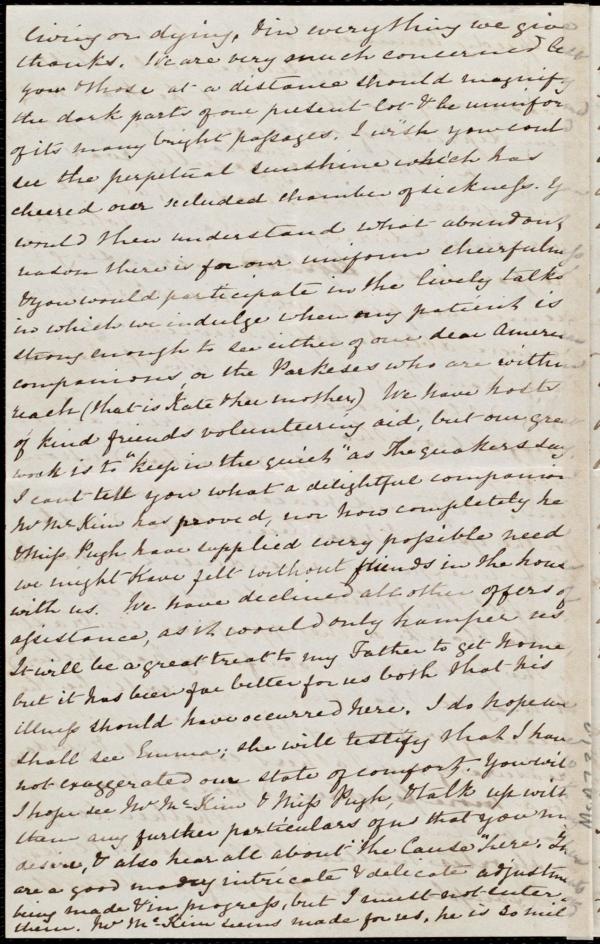 living or dying, & in everything we give
thanks. We are very much concerned lest
you & those at a distance should magnify
the dark parts of our present lot & be uninfor
of its many bright passages. I wish you coul
see the perpetual sunshine which has
cheered our secluded chamber of sickness. Y
would then understand what abundant
reason there is for our uniform cheerfulness
& you would participate in the lively talks
in which we indulge when my patient is
strong enough to see either of our dear Ameri
companions, or the Parkeses who are within
reach (that is Kate & her mother) We have hosts
of kind friends volunteering aid, but our great
work is to "keep in the quiet" as the quakers say,
I cant tell you what a delightful companion
Mr McKim has proved, nor how completely he
& Miss Pugh have supplied every possible need
we might have felt without friends in the house
with us. We have declined all other offers of
assistance, as it would only hamper us
It will be a great treat to my Father to get home
but it has been far better for us both that his
illness should have occurred here. I do hope we
shall see Emma; she will testify that I have
not exaggerated our state of comfort. You will
I hope see Mr McKim & Miss Pugh, & talk up with
them any further particulars of us that you m
desire, & also hear all about "the Cause" here. Th
are a good many intricate & delicate adjustm
being made & in progress, but I must not enter
them. Mr McKim seems made for us, he is so mil